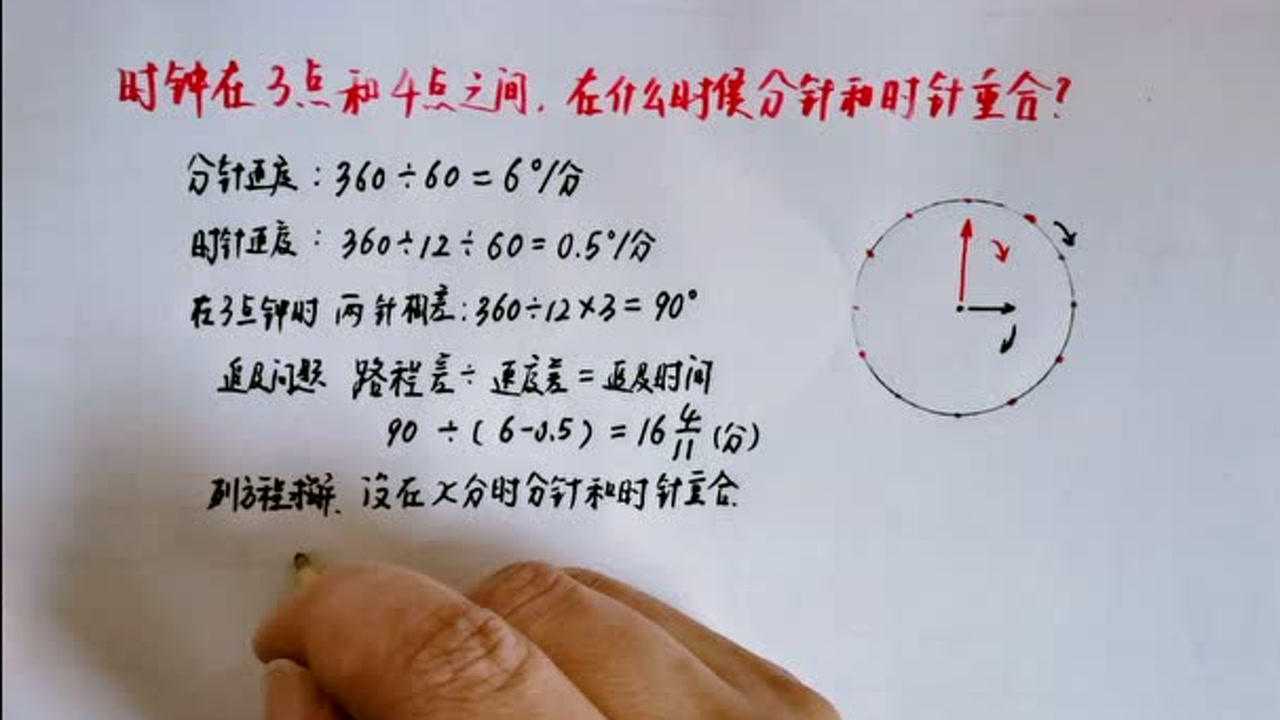 时钟在3点和4点之间.在什么时候分针和时针重合?
分针速度:360÷60=6°/分
时针速度:360÷12÷60=0.5°/分
在3点钟时 两针相差:360÷12×3=90°
追及问题 路程差÷速度差=追及时间
90÷(6-0.5)=16 4/11(分)
列方程求解.设在x分时分针和时针重合.